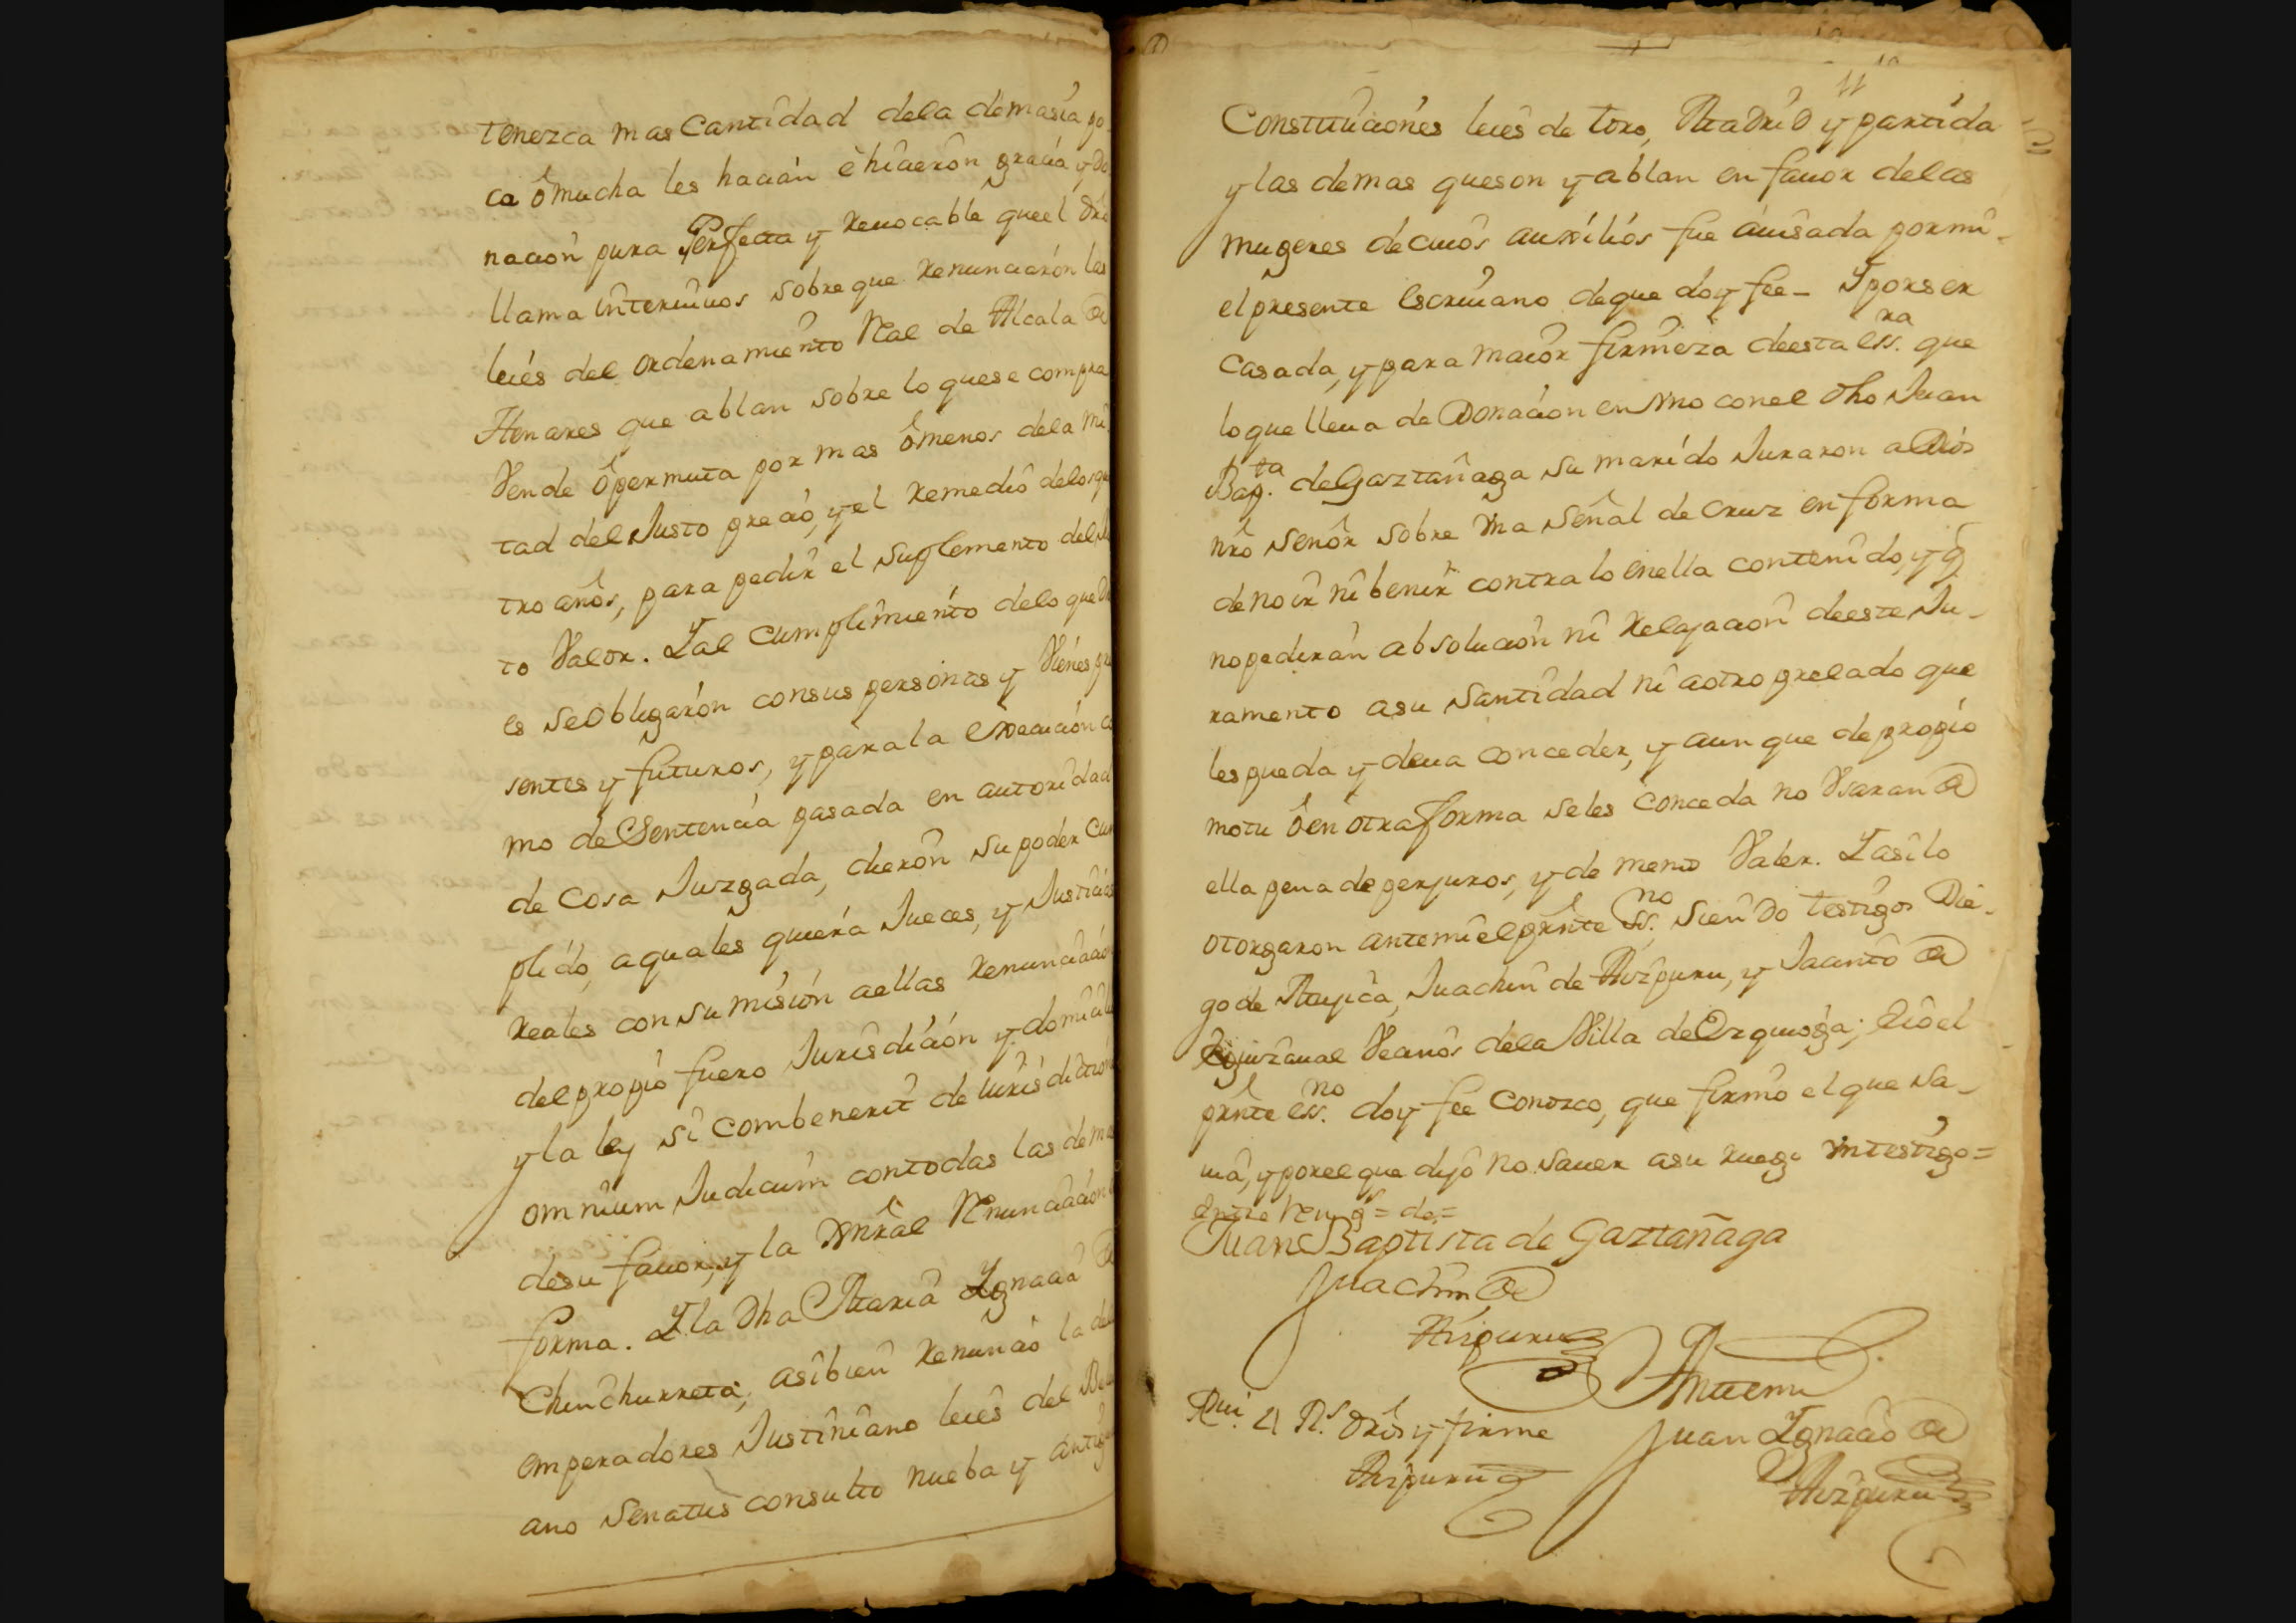 tenezca mas Cantidad dela demasia po
ca ô mucha les hacian è hicieron gracia y do
nacion pura Perfecta y Revocable que el dro
llama interuiuos sobre que Renunciaron las
leies del ordenamiento Real de Alcala de
Henares que ablan sobre lo que se compra
Vende ô permuta por mas ô menos dela mi
tad del Justo precio, y el remedio delos qua
tro años, para pedir el suplemento del Jus
to Valor. Y al cumplimiento delo que di
es se obligaron con sus personas y Vienes pre
sentes y futuros, y para la execucion co
mo de Sentencia pasada en autoridad
de Cosa Juzgada, dieron su poder cum
plido, aquales quiera Jueces, y Justicias
Reales con sumision aellas Renunciacion
del propio fuero Jurisdicion y domicilio
y la ley si combenerit de iurisdictione
omnium Judicum contodas las demas
desu fauor, y la gnral Renunciacion
forma. Y la dha Maria Ygnacia de
Chinchurreta, asi bien Renuncio la del
emperadores Justiniano leies del Bele
ano Senatus consulto nueba y antigua
Constituciones leies de toro, Madrid y partida
y las demas que son y ablan en fauor delas
mugeres de cuios auxilios fue auisada por mi
el presente Escriuano de que doy fee - Y por ser
casada, y para maior firmeza de esta ess.ra que
lo que lleua de Donacion en Vno con el dho Juan
Bap.ta de Gaztañaga su marido Juraron a Dios
nro señor sobre Vna señal de Cruz en forma
de no ir ni benir contra lo enella contenido, y q̃
no pediran absolucion ni Relajacion de este Ju-
ramento a su Santidad ni a otro prelado que
les pueda y deua conceder, y aun que de propio
motu ô en otra forma se les conceda no Vsaran de
ella pena de perjuros, y de menos Valer. Y asi lo
otorgaron ante mi el prnte ss.no, siendo testigos Die-
go de Mugica, Juachin de Aizpuru, y Jacinto de
Eguizaual Vecinos dela Villa de Ezquioga; Eio el
prnte ess.no doy fee conozco, que firmó el que sa-
uia, y por el que dijo no sauer a su ruego Vn testigo =
Juan Baptista de Gaztañaga
Juachin de
Aizpuru
Antemi
Juan Ygnacio de
Aizpuru
Rui 4 R.s dros y firme
Aizpuru